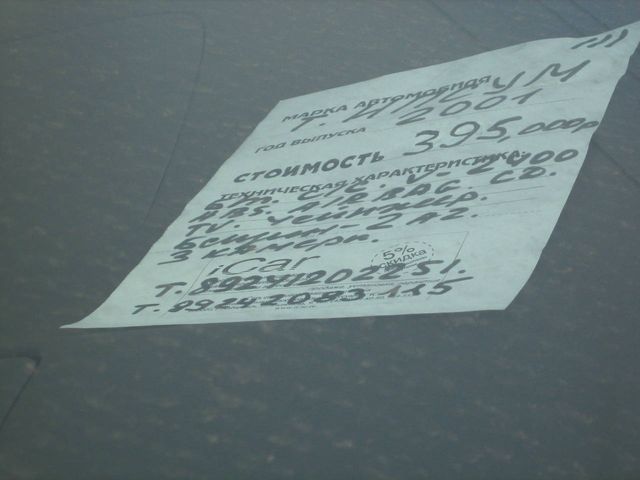 МАРКА АВТОМОБИЛЯ
Т. ИПСУМ
ГОД ВЫПУСКА 2001
СТОИМОСТЬ 395,000р
ТЕХНИЧЕСКАЯ ХАРАКТЕРИСТИКА:
V-2400
ABS. AIRBAG. CD.
TV. Чейнжер.
Бензин - 2 А2.
3 камеры.
iCar
5% скидка
Т. 89241202251.
Т. 89242093115